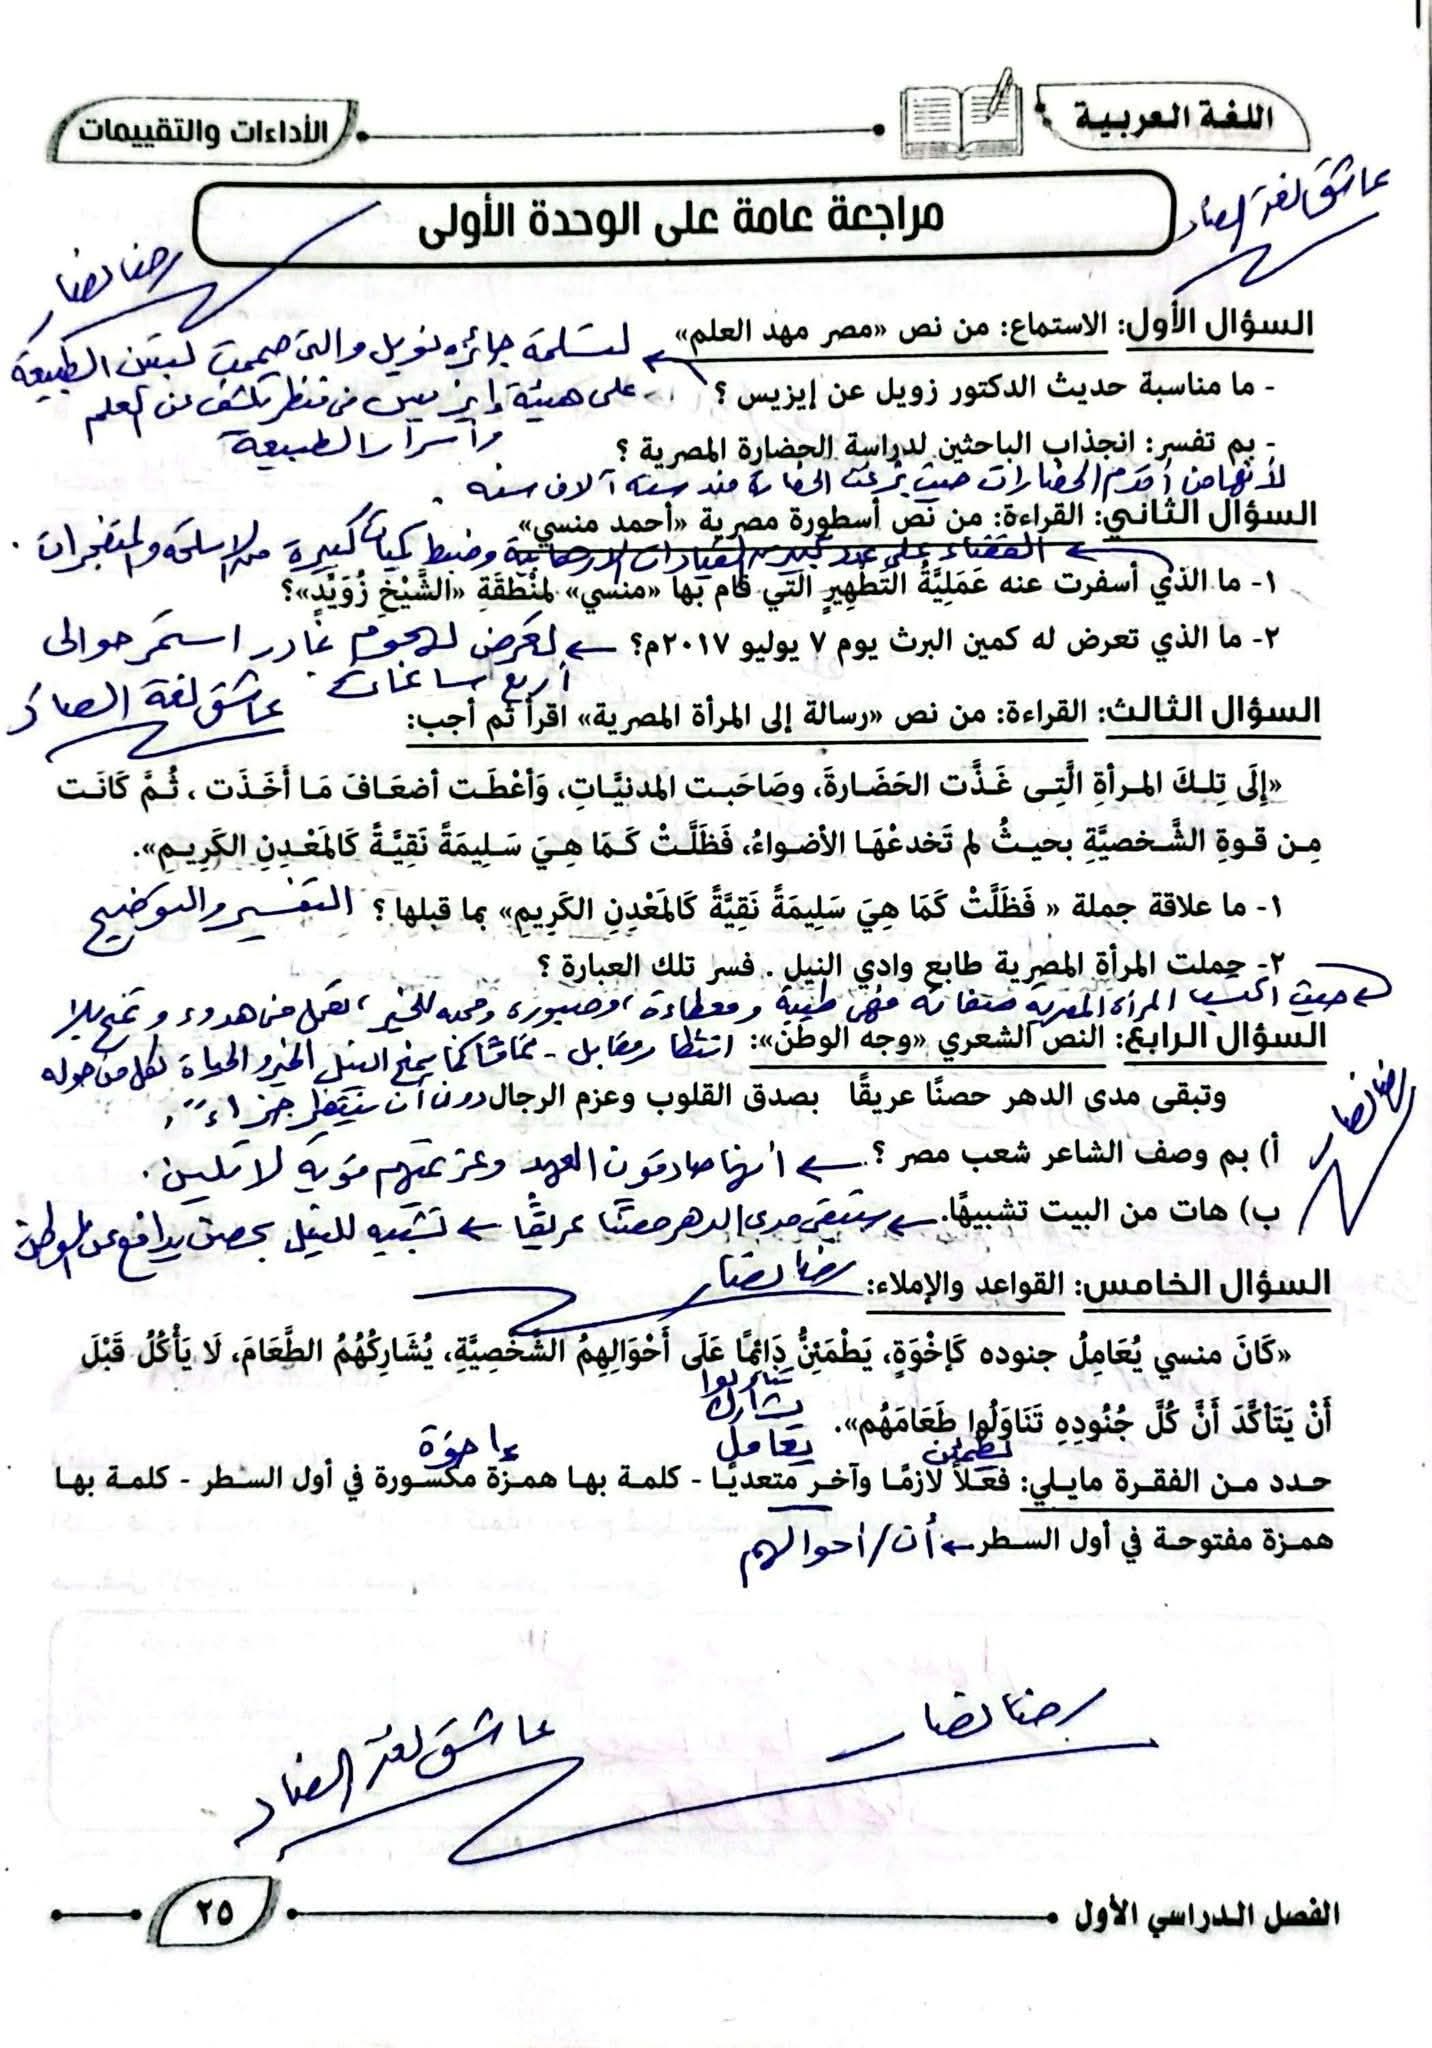 اللغة العربية
الأداءات والتقييمات
عاشق لغة الضاد
مراجعة عامة على الوحدة الأولى
رضا نصار
السؤال الأول: الاستماع: من نص «مصر مهد العلم»
لتسلمه جائزه نوبل والتى صممت لتبين الطبيعة
- ما مناسبة حديث الدكتور زويل عن إيزيس ؟
على هيئة إيزيس فى منظر تكشف عن العلم
وأسرار الطبيعة
- بم تفسر: انجذاب الباحثين لدراسة الحضارة المصرية ؟
لأنها من أقدم الحضارات حيث بزغت الحضارة منذ ستة آلاف سنه .
السؤال الثاني: القراءة: من نص أسطورة مصرية «أحمد منسي»
القضاء على عدد كبير من القيادات الإرهابية وضبط كميات كبيرة من الاسلحة والمتفجرات .
١- ما الذي أسفرت عنه عَمَلِيَّةُ التَّطْهِيرِ الَّتِي قام بها «منسي» لِمِنْطَقَةِ «الشَّيْخِ زُوَيْدٍ»؟
٢- ما الذي تعرض له كمين البرث يوم ٧ يوليو ٢٠١٧م؟ تعرض لهجوم غادر استمر حوالى
أربع ساعات .
عاشق لغة الضاد
السؤال الثالث: القراءة: من نص «رسالة إلى المرأة المصرية» اقرأ ثم أجب:
«إِلَى تِلكَ المرأةِ الَّتِى غَذَّت الحَضَارةَ، وصَاحَبت المدنيَّاتِ، وَأعْطَت أضعَافَ مَا أَخَذَت ، ثُمَّ كَانَت
مِن قوةِ الشَّخصيَّةِ بحيثُ لم تَخدعْهَا الأضواءُ، فَظَلَّتْ كَمَا هِيَ سَلِيمَةً نَقِيَّةً كَالمَعْدِنِ الكَرِيمِ».
١- ما علاقة جملة « فَظَلَّتْ كَمَا هِيَ سَلِيمَةً نَقِيَّةً كَالمَعْدِنِ الكَرِيمِ» بما قبلها ؟ التفسير والتوضيح
٢- حملت المرأة المصرية طابع وادي النيل . فسر تلك العبارة ؟
حيث اكتسبت المرأة المصرية صفاته فهى طيبة ومعطاءة ، وصبوره ومحبه للخير ، تعمل فى هدوء وتمنح بلا
السؤال الرابع: النص الشعري «وجه الوطن»: انتظار مقابل - تمامًا كما يمنح النيل الخير والحياة لكل من حوله
وتبقى مدى الدهر حصنًا عريقًا بصدق القلوب وعزم الرجال
دون أن ينتظر جزاءً
رضا نصار
أ) بم وصف الشاعر شعب مصر ؟ أنها صادقون العهد وعزيمتهم قوية لا تلين .
ب) هات من البيت تشبيهًا. ستبقى مدى الدهر حصنًا عريقًا تشبيه للنيل بحصن يدافع عن الوطن
رضا نصار
السؤال الخامس: القواعد والإملاء:
«كَانَ منسي يُعَامِلُ جنوده كَإخْوَةٍ، يَطْمَئِنُّ دَائِمًا عَلَى أَحْوَالِهِمُ الشَّخْصِيَّةِ، يُشَارِكُهُمُ الطَّعَامَ، لَا يَأْكُلُ قَبْلَ
أَنْ يَتَأكَّدَ أَنَّ كُلَّ جُنُودِهِ تَنَاوَلُوا طَعَامَهُم».
تناولوا
يشارك
يعامل
إخوة
يطمئن
حدد من الفقرة مايلي: فعلًا لازمًا وآخر متعديًا - كلمة بها همزة مكسورة في أول السطر - كلمة بها
همزة مفتوحة في أول السطر أن / أحوالهم
رضا نصار
عاشق لغة الضاد
الفصل الدراسي الأول
٢٥